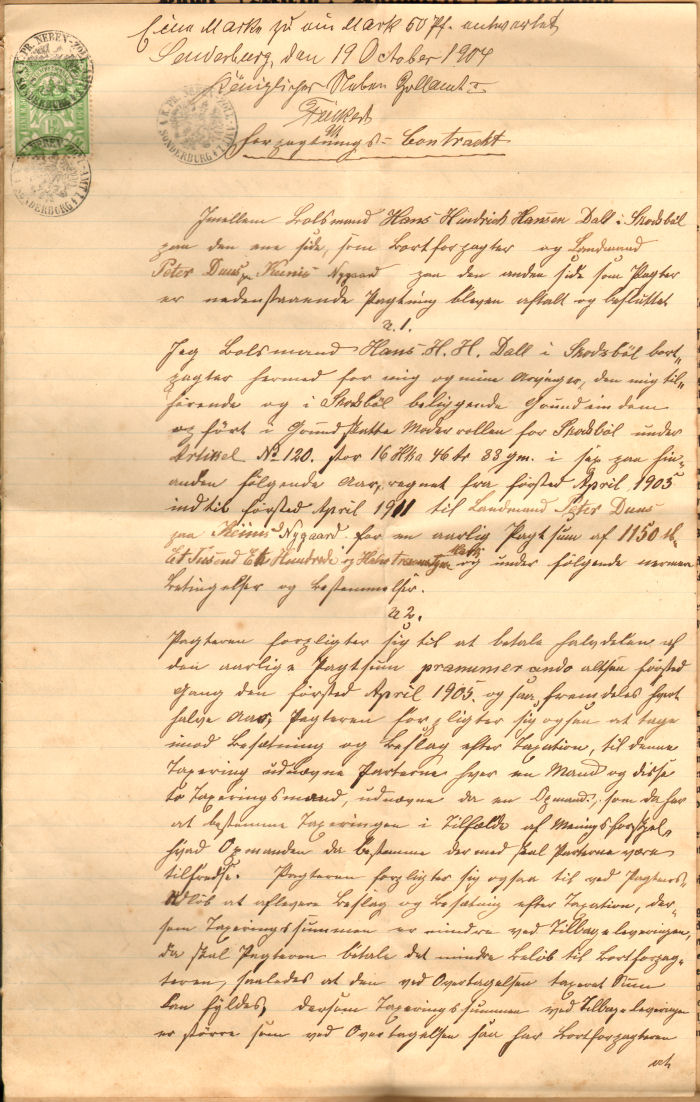 Eine Marke zu ein Mark 50 Pf. entwertet
Sonderburg, den 19 October 1904
Königliches Neben Zollamt I
K. PR. NEBEN-ZOLL-AMT I
SONDERBURG
Forpagtnings-Contrackt
Imellem Bolsmand Hans Hindrick Hansen Dall i Skodsböl
paa den ene side, som Bortforpagter og Landmand
Peter Duus paa Nygaard paa den anden side som Pagter
er nedenstaaende Pagtning bleven aftalt og besluttet
1.
Jeg Bolsmand Hans H. H. Dall i Skodsböl bort-
pagter hermed for mig og mine Arvinger, den mig til-
hörende og i Skodsböl beliggende Grundeiendom
opfört i Grundskatte Moderrollen for Skodsböl under
Artikel No 120. stor 16 Hka 46 Ar 33 qm. i sex paa hin-
anden fölgende Aar, regnet fra försted April 1905
indtil försted April 1911 til Landmand Peter Duus
paa Nygaard for en aarlig Pagtsum af 1150 M.
Et Tusend Et Hundrede og Halvtresenstyve Mark og under fölgende nermere
Betingelser og Bestemmelser.
2.
Pagteren forpligter sig til at betale halvdelen af
den aarlige Pagtsum pranumerando altsaa försted
Gang den försted April 1905. og saa fremdeles hvert
halve Aar, Pagteren forpligter sig ogsaa at tage
imod Besætning og Beslag efter Taxation, til denne
Taxering udnævne Parterne hver en Mand og disse
to Taxeringsmænd, udnævne da en Opmand, som da har
at bestemme Taxeringen i Tilfælde af Meningsforskjel,
hvad Opmanden da bestemme dermed skal Parterne være
tilfredse. Pagteren forpligter sig ogsaa til ved Pagtens
Udlöb at aflevere Beslag og Besætning efter Taxation, der-
som Taxeringssummen er mindre ved Tilbageleveringen,
da skal Pagteren betale det mindre Belöb til Bortforpag-
teren, saaledes at den ved Overtagelsen taxeret Sum
kan fyldes, dersom Taxeringssummen ved Tilbageleveringen
er större som ved Overtagelsen saa har Bortforpagteren
at